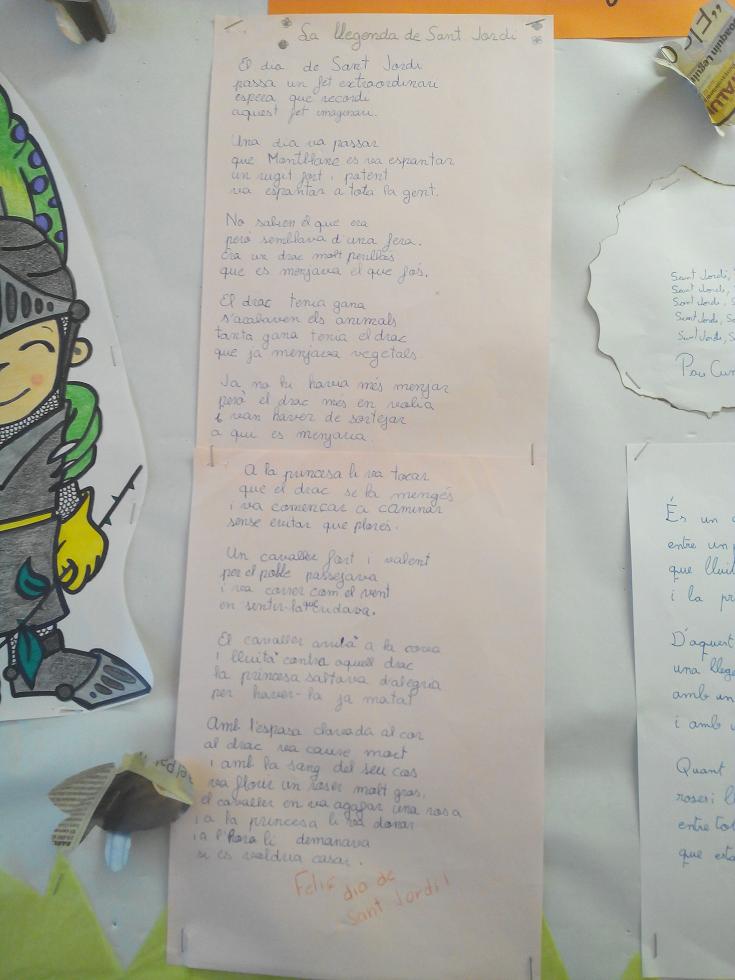 La llegenda de Sant Jordi
El dia de Sant Jordi
passa un fet extraordinari
espera que recordi
aquest fet imaginari.
Una dia va passar
que Montblanc es va espantar
un rugit fort i potent
va espantar a tota la gent.
No sabien el que era
però semblava d'una fera.
Era un drac molt perillós
que es menjava el que fos.
El drac tenia gana
s'acabaven els animals
tanta gana tenia el drac
que ja menjava vegetals.
Ja no hi havia més menjar
però el drac més en volia
i van haver de sortejar
a que es menjaria.
A la princesa li va tocar
que el drac se la mengés
i va començar a caminar
sense evitar que plorés.
Un cavaller fort i valent
per el poble passejava
i va correr com el vent
en sentir-la que cridava.
El cavaller anità a la cova
i lluità contra aquell drac
la princesa saltava d'alegria
per haver-la ja matat
Amb l'espasa clavada al cor
al drac va caure mort
i amb la sang del seu cos
va florir un roser molt gros,
el cavaller en va agafar una rosa
i a la princesa li va donar
i a l'hora li demanava
si es voldria casar.
Feliç dia de
Sant Jordi!
Sant Jordi,
Sant Jordi,
Sant Jordi,
Sant Jordi,
Sant Jordi,
Pau
És un
entre un
que lluit
i la pr
D'aquest
una llege
amb un
i amb
Quant
roser i ll
entre tot
que esta